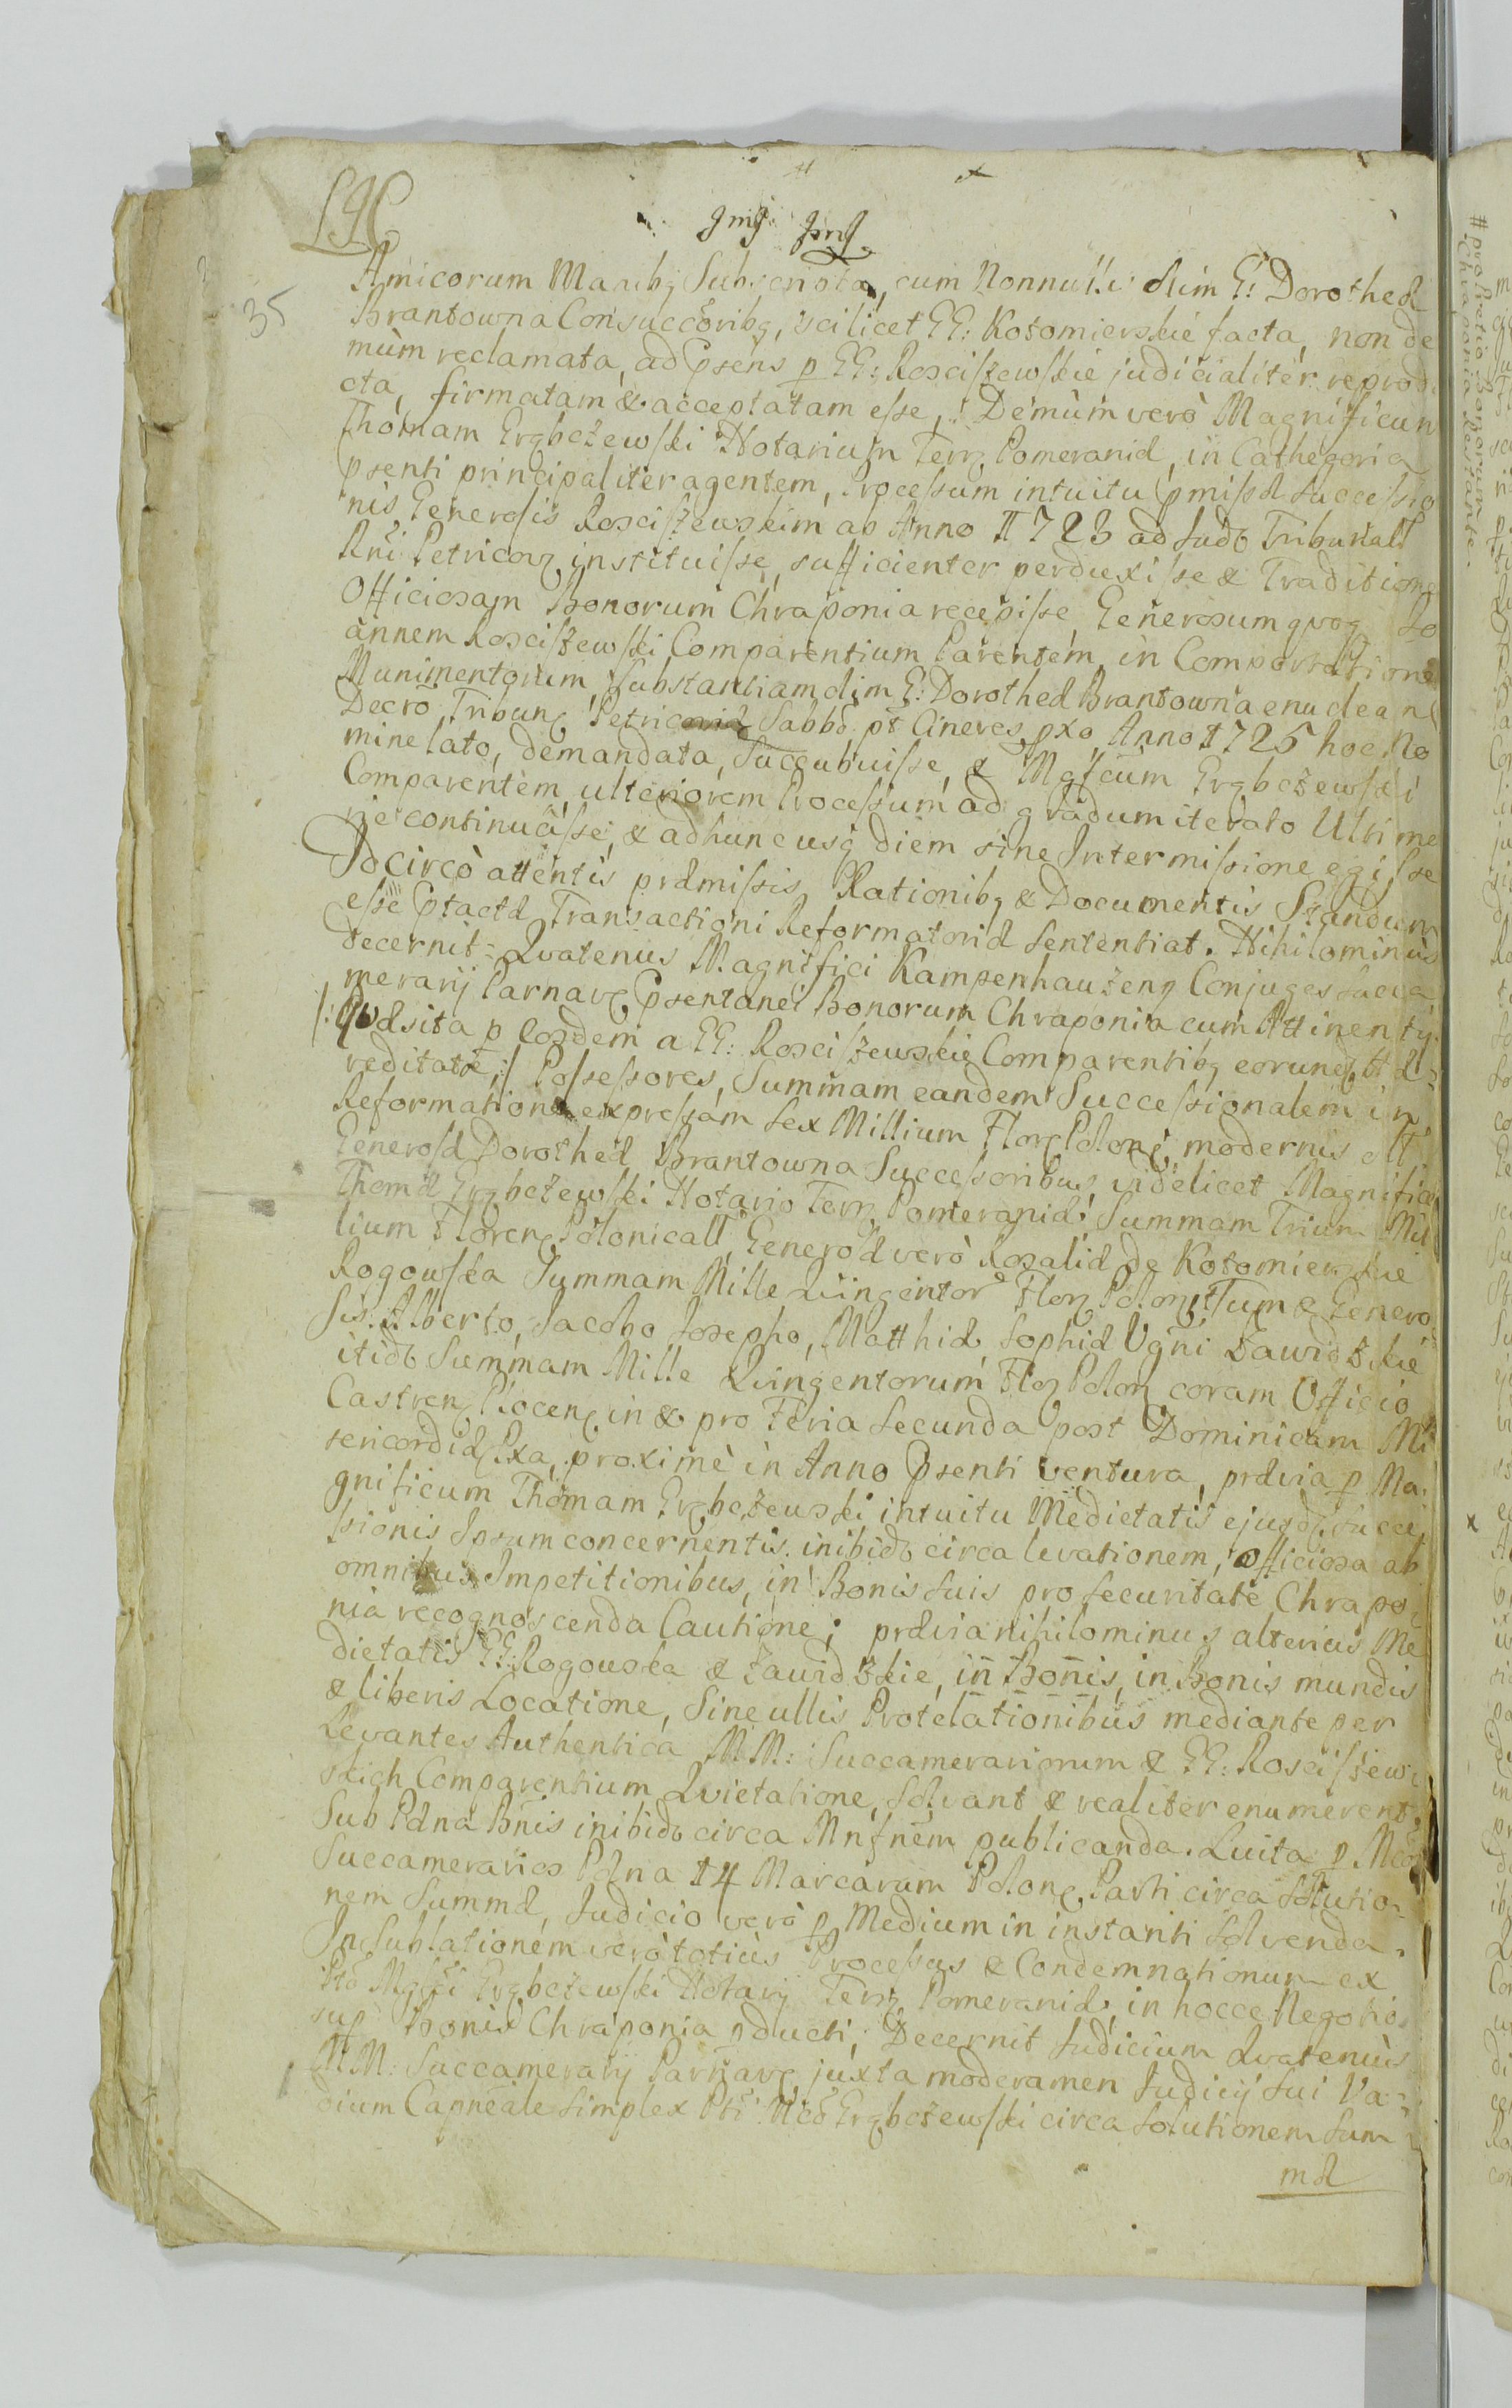 35
Amicorum Manibq Subscripta, cum Nonnullis olim G: Dorotheæ
Brantowna Consuccoribq, scilicet GG: Kotomierskie facta, non de
mum reclamata, ad Psens p GG: Rosciszewskie judicialiter reprodu
cta, firmatam & acceptatam esse, Demum verò Magnificum
Thomam Grąbczewski Notarium Terr Pomeraniæ, in Cathegoria
Psenti principaliter agentem, Processum intuitu Pmissæ Successio
nis Generosis Rosciszewskim ab Anno 1723 ad Judb Tribunalℓ
Rni Petricov instituisse, sufficienter perduxisse & Traditionem
Officiosam Bonorum Chraponia recepisse Generosum quoq Jo
annem Rosciszewski Comparentium Parentem, in Comportatione
Munimentorum Substantiam olim G: Dorotheæ Brantowna enuclean
Decro Tribun Petrico Sabbō pt Cineres pxo Anno 1725 hoc No
mine lato, demandata, Succubuisse, & Mgfcum Grąbczewski
Comparentem ulteriorem Processum ad gradum iterato Ultimæ
rie continuasse, & adhunc usq diem sine Intermissione egisse
Idcircò attentis præmissis Rationibq & Documentis Standum
esse Ptactæ Transactioni Reformatoriæ Sententiat. Nihilominus
decernit: Quatenus Magnifici Kampenhauzeny Conjuges Succa
merarij Parnav Psentanei Bonorum Chraponia cum Attinentijs
/: Quæsita p Eosdem a GG: Rosciszewskie Comparentibq eorundem Hæ
reditate :/ Possessores, Summam eandem Successionalem in
Reformatione expressam Sex Millium Flor Polon modernis oℓℓ
Generosæ Dorotheæ Brantowna Successoribus, videlicet Magnifico
Thomæ Grąbczewski Notario Terr Pomeraniæ, Summam Trium Mil
lium Floren Polonicalℓ, Generosæ verò Rosaliæ de Kotomierskie
Rogowska Summam Mille Quingentor Flor Polon, Tum & Genero
sis Alberto, Jacobo Josepho, Matthiæ, Sophiæ Vgni Zawidzkie
itidb Summam Mille Quingentorum Flor Polon coram Officio
Castren Plocen in & pro Feria Secunda post Dominicam Mi
sericordiæ Pxa, proximè in Anno Psenti ventura, prævia p Ma
gnificum Thomam Grąbczewski intuitu Medietatis ejusd Succes
sionis Ipsum concernentis inibidb circa levationem, officiosa ab
omnibus Impetitionibus, in Bonis suis pro Securitate Chrapo
nia recognoscenda Cautione; prævia nihilominus alterius Me
dietatis GG: Rogowska & Zawidzkie, in Bonis, in Bonis mundis
& liberis Locatione, Sine ullis Protelationibus mediante per
Levantes Authentica MM: Succamerariorum & GG: Rosciszew
skich Comparentium Quietatione, Solvant & realiter enumerent,
Sub Pæna Bnis inibidb circa Mnfnem publicanda. Luita p Mcos
Succamerarios Pæna 14 Marcarum Polon Parti circa Solutio
nem Summæ, Judicio verò p Medium in instanti Solvenda.
In Sublationem verò totius Processus & Condemnationum ex
Ptē Mgfci Grąbczewski Notarij Terr Pomeraniæ, in hocce Negotio
sup Bonis Chraponia pducti, Decernit Judicium Quatenus
MM: Succamerarij Parnav juxta moderamen Judicij Sui Va
dium Cappeale Simplex Pti Mcō Grąbczewski circa Solutionem Sum
mæ
# pro Pretio Bonorum
Chraponia Restante.